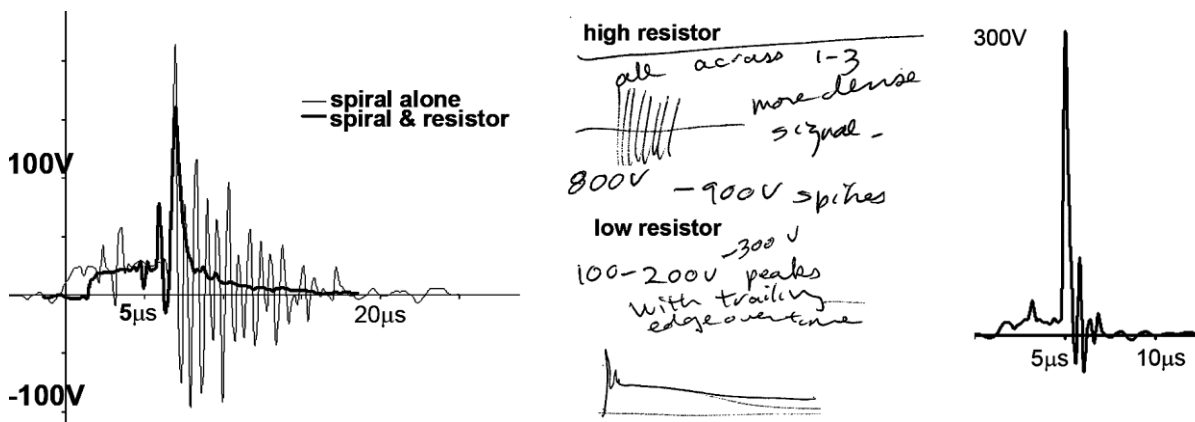 spiral alone
spiral & resistor
100V
5µs
20µs
-100V
high resistor
all across 1-3
more dense
signal -
800V - 900V spikes
low resistor
-300V
100-200V peaks
with trailing
edge overtime
300V
5µs
10µs